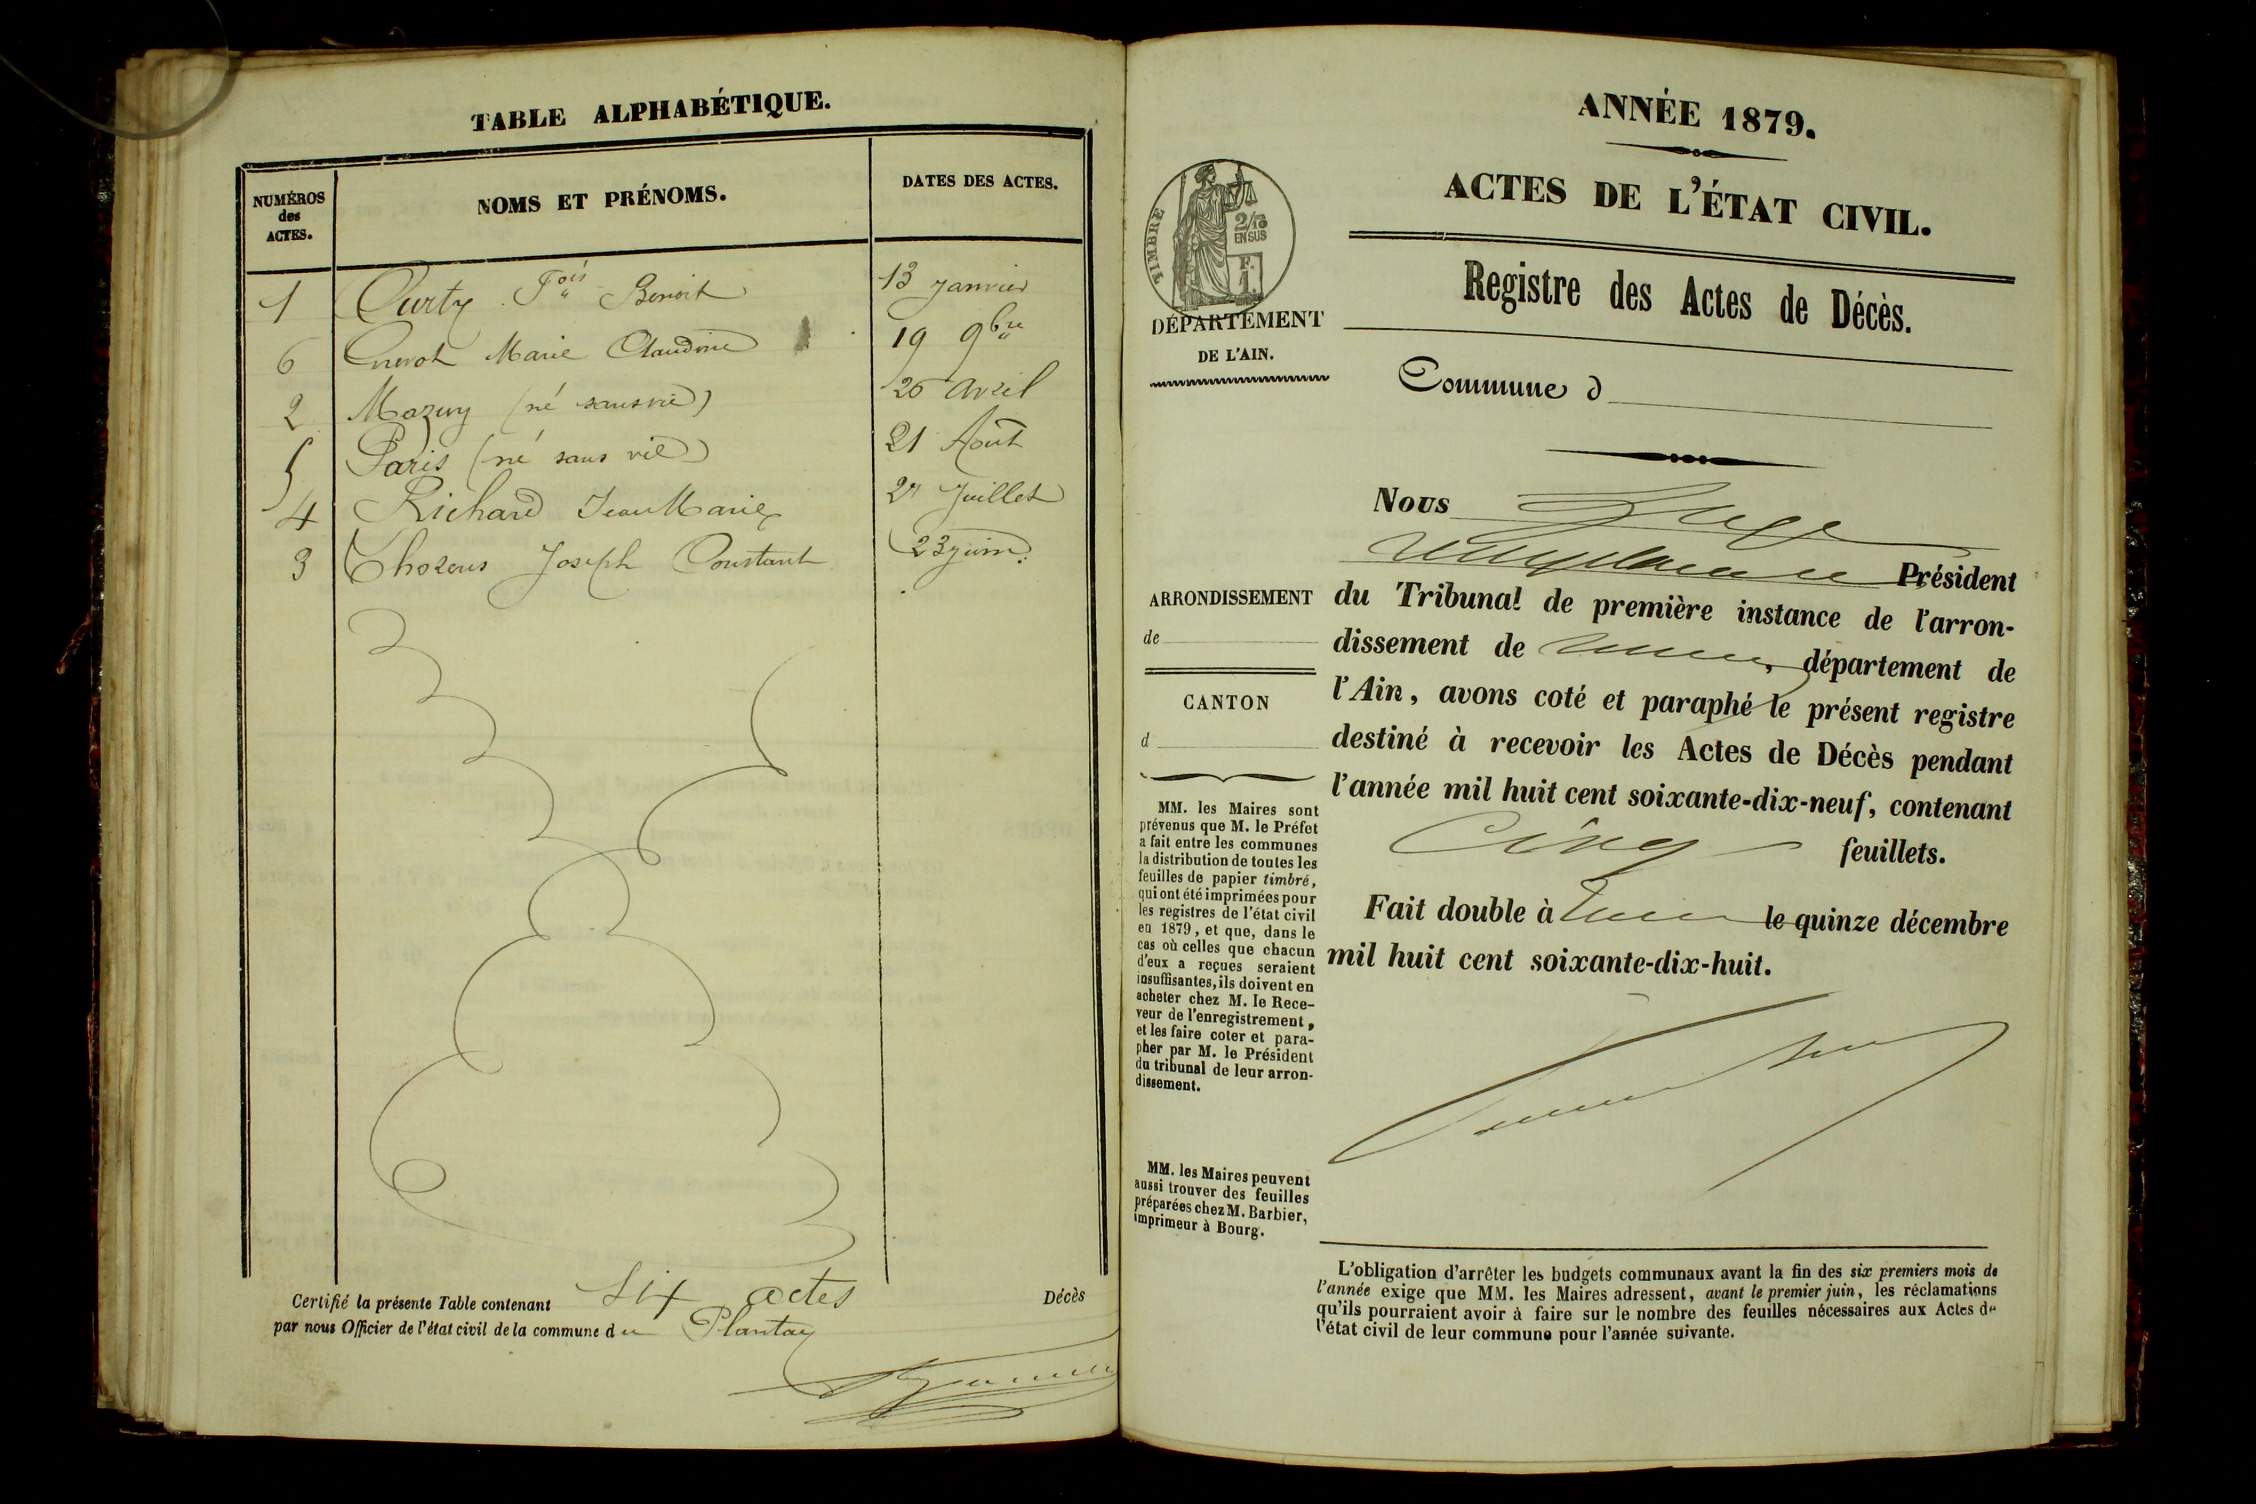 TABLE ALPHABÉTIQUE.
NUMÉROS
des
ACTES.
NOMS ET PRÉNOMS.
DATES DES ACTES.
1 Curty Fois Benoit 13 Janvier
6 Marie Claudine 19 9bre
2 Mazuy (né sans vie) 26 Avril
5 Paris (né sans vie) 21 Août
4 Richard Jean Marie 27 Juillet
3 Joseph Constant 23 juin
Certifié la présente Table contenant six actes Décès
par nous Officier de l'état civil de la commune du Plantay
ANNÉE 1879.
ACTES DE L'ÉTAT CIVIL.
TIMBRE
2/10
EN SUS
F.
1.
Registre des Actes de Décès.
DÉPARTEMENT
DE L'AIN.
Commune d
Nous Juge
Président
du Tribunal de première instance de l'arron-
dissement de département de
l'Ain, avons coté et paraphé le présent registre
destiné à recevoir les Actes de Décès pendant
l'année mil huit cent soixante-dix-neuf, contenant
Cinq feuillets.
Fait double à le quinze décembre
mil huit cent soixante-dix-huit.
ARRONDISSEMENT
de
CANTON
d
MM. les Maires sont
prévenus que M. le Préfet
a fait entre les communes
la distribution de toutes les
feuilles de papier timbré,
qui ont été imprimées pour
les registres de l'état civil
en 1879, et que, dans le
cas où celles que chacun
d'eux a reçues seraient
insuffisantes, ils doivent en
acheter chez M. le Rece-
veur de l'enregistrement,
et les faire coter et para-
pher par M. le Président
du tribunal de leur arron-
dissement.
MM. les Maires peuvent
aussi trouver des feuilles
préparées chez M. Barbier,
imprimeur à Bourg.
L'obligation d'arrêter les budgets communaux avant la fin des six premiers mois de
l'année exige que MM. les Maires adressent, avant le premier juin, les réclamations
qu'ils pourraient avoir à faire sur le nombre des feuilles nécessaires aux Actes de
l'état civil de leur commune pour l'année suivante.